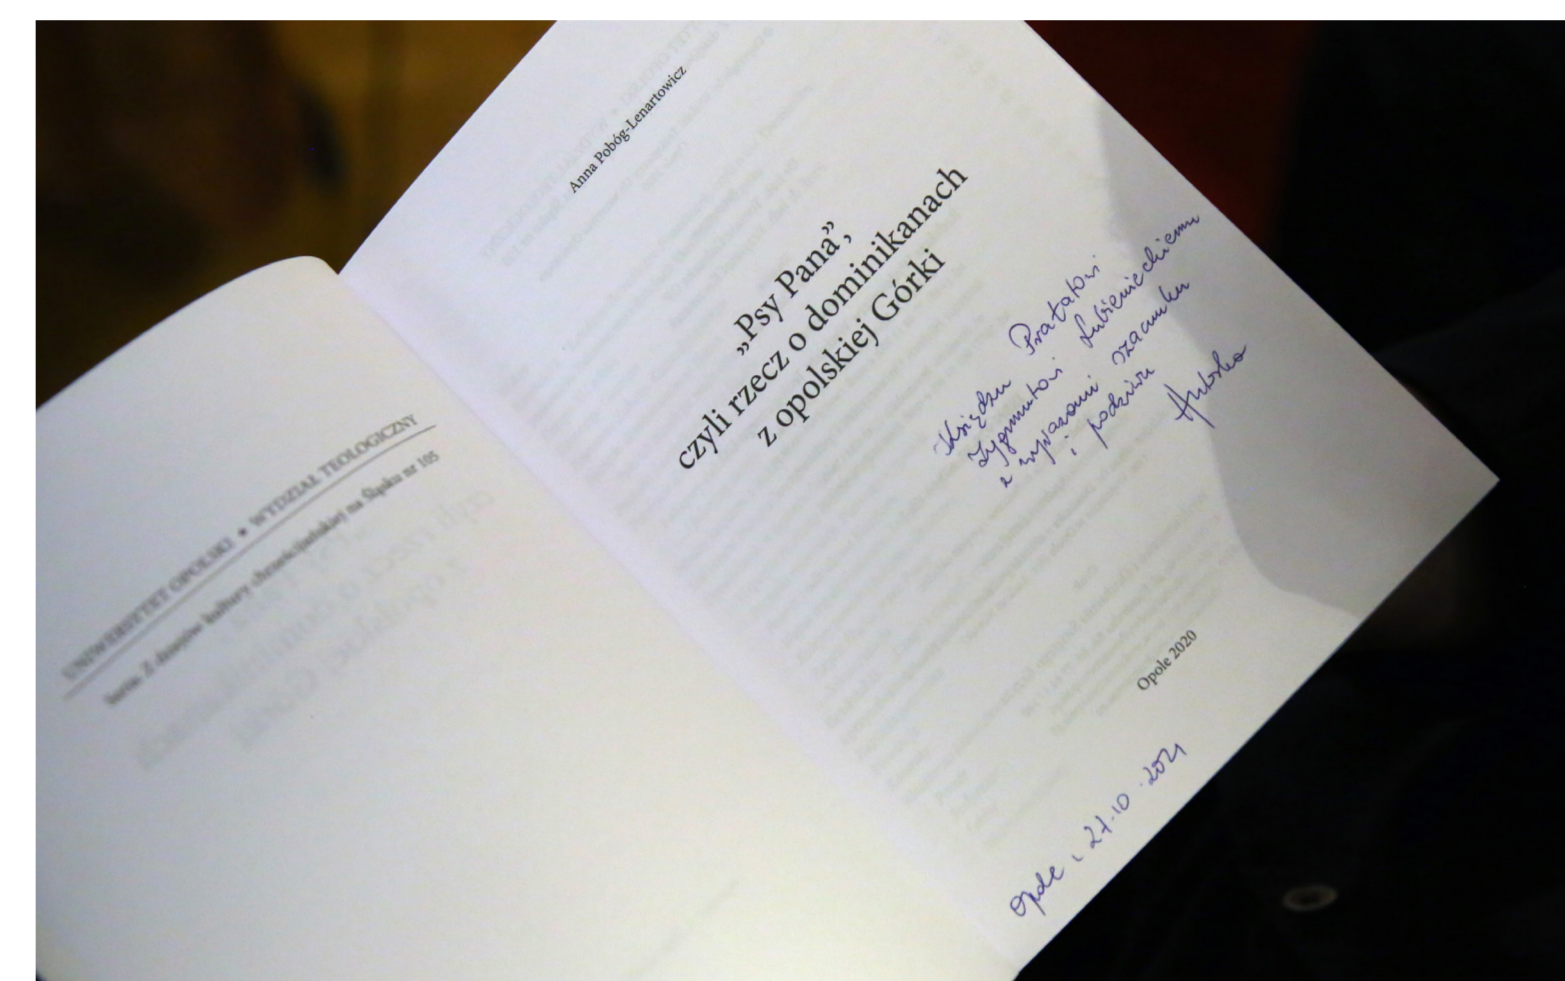 UNIWERSYTET OPOLSKI • WYDZIAŁ TEOLOGICZNY
Seria: Z dziejów kultury chrześcijańskiej na Śląsku nr 105
Anna Pobóg-Lenartowicz
„Psy Pana”,
czyli rzecz o dominikanach
z opolskiej Górki
Księdzu Prałatowi
Zygmuntowi Lubienieckiemu
z wyrazami szacunku
i podziwu
Autorka
Opole 2020
Opole, 27.10.2021